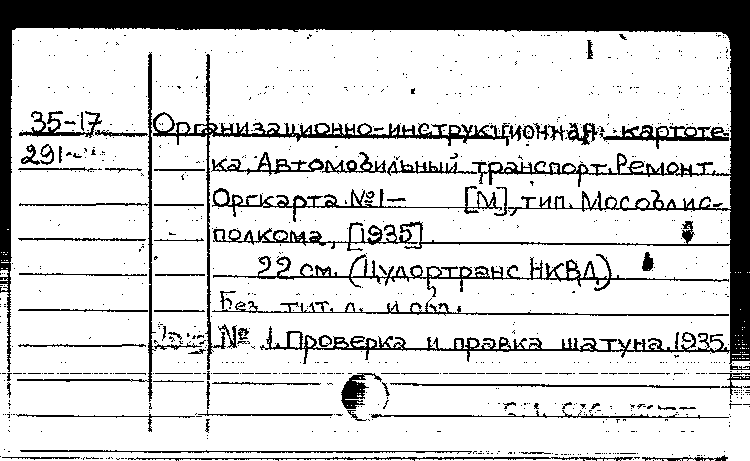 35-17 Организационно-инструкционная картоте-
291 ка. Автомобильный транспорт. Ремонт.
Оргкарта №1— [М], тип. Мособлис-
полкома, [1935].
22 см. (Цудортранс НКВД).
Без тит. л. и обл.
№ 1. Проверка и правка шатуна. 1935.
См. след. карт.